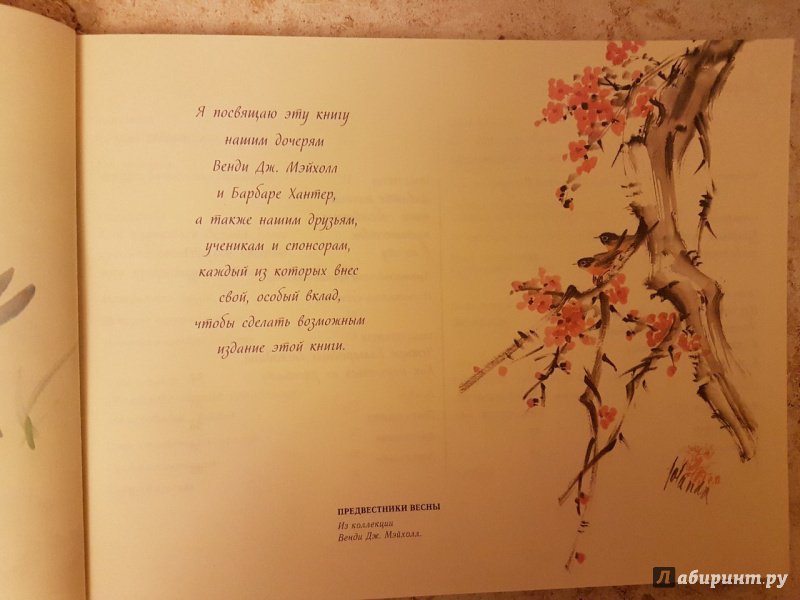 Я посвящаю эту книгу
нашим дочерям
Венди Дж. Мэйхолл
и Барбаре Хантер,
а также нашим друзьям,
ученикам и спонсорам,
каждый из которых внес
свой, особый вклад,
чтобы сделать возможным
издание этой книги.
ПРЕДВЕСТНИКИ ВЕСНЫ
Из коллекции
Венди Дж. Мэйхолл.
Лабиринт.ру